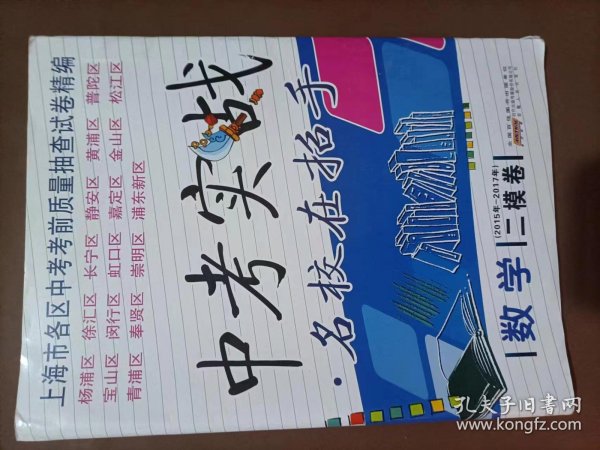 上海市各区中考考前质量抽查试卷精编
杨浦区 徐汇区 长宁区 静安区 黄浦区 普陀区
宝山区 闵行区 虹口区 嘉定区 金山区 松江区
青浦区 奉贤区 崇明区 浦东新区
中考实战
·名校在招手
(2015年-2017年)
数学 二模卷
孔夫子旧书网
www.kongfz.com